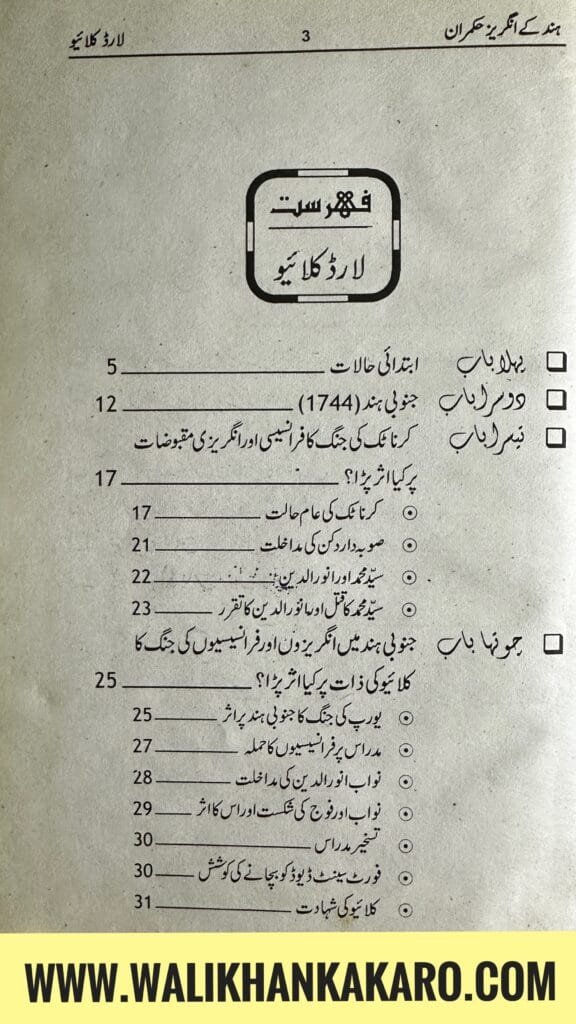 ہند کے انگریز حکمران 3 لارڈ کلائیو
فہرست
لارڈ کلائیو
پہلا باب ابتدائی حالات 5
دوسرا باب جنوبی ہند (1744) 12
تیسرا باب کرناٹک کی جنگ کا فرانسیسی اور انگریزی مقبوضات
پر کیا اثر پڑا؟ 17
کرناٹک کی عام حالت 17
صوبہ دار دکن کی مداخلت 21
سیّد محمد اور انور الدین 22
سیّد محمد کا قتل اور انور الدین کا تقرر 23
چوتھا باب جنوبی ہند میں انگریزوں اور فرانسیسیوں کی جنگ کا
کلائیو کی ذات پر کیا اثر پڑا؟ 25
یورپ کی جنگ کا جنوبی ہند پر اثر 25
مدراس پر فرانسیسیوں کا حملہ 27
نواب انور الدین کی مداخلت 28
نواب اور فوج کی شکست اور اس کا اثر 29
تسخیر مدراس 30
فورٹ سینٹ ڈیوڈ کو بچانے کی کوشش 30
کلائیو کی شہادت 31
WWW.WALIKHANKAKARO.COM